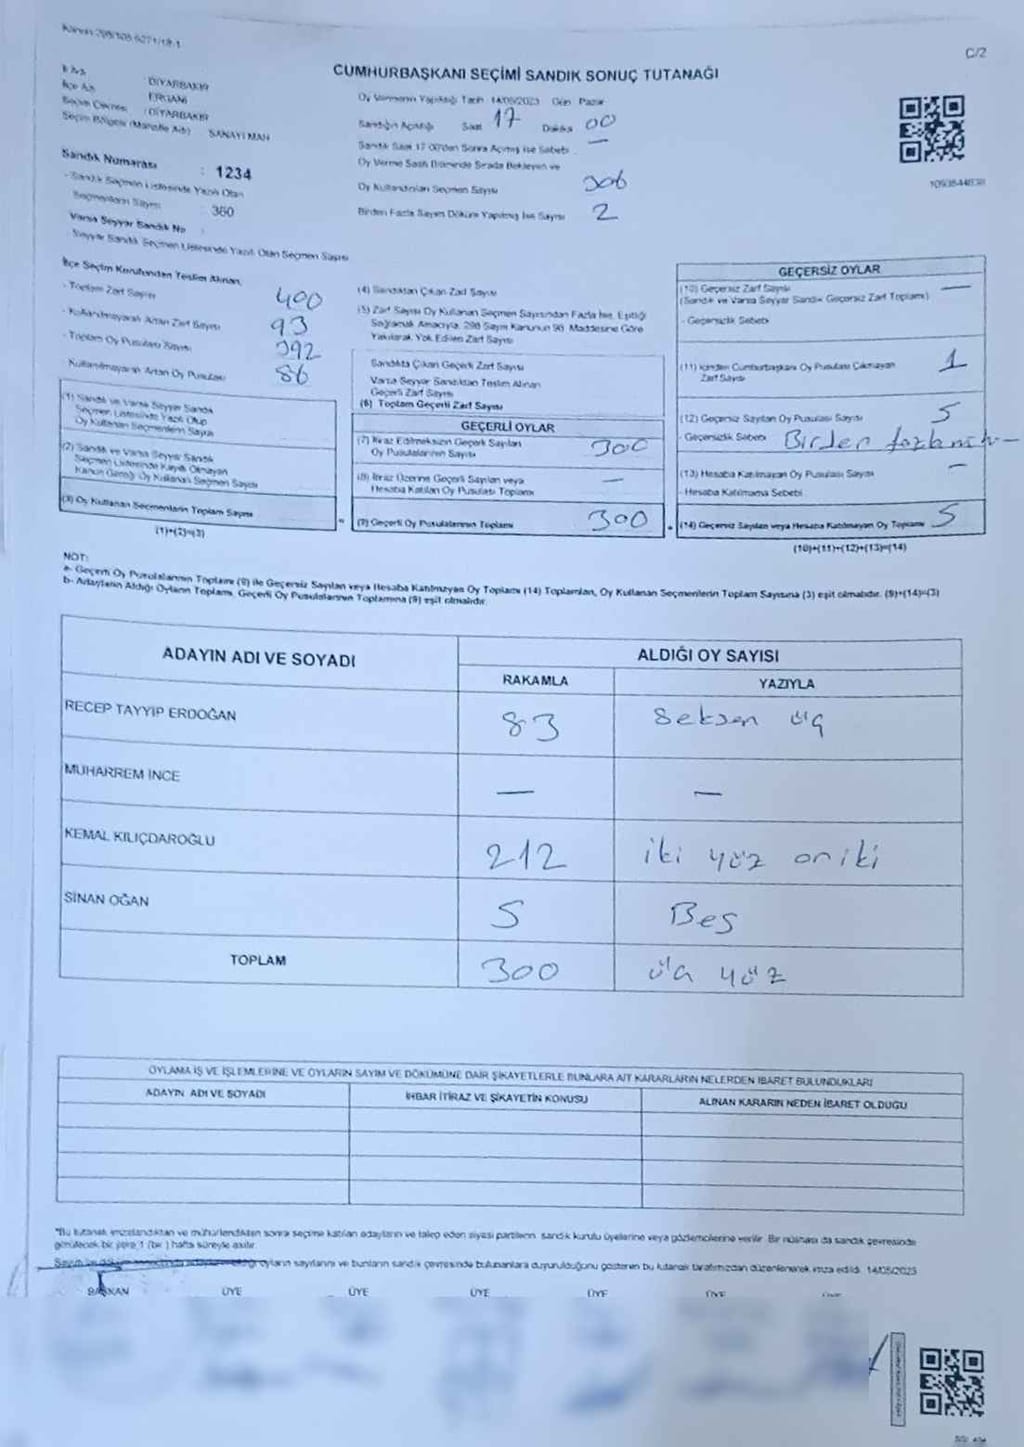 C/2
CUMHURBAŞKANI SEÇİMİ SANDIK SONUÇ TUTANAĞI
İl Adı : DİYARBAKIR
İlçe Adı : ERGANİ
Seçim Çevresi : DİYARBAKIR
Seçim Bölgesi (Mahalle Adı) SANAYİ MAH
Sandık Numarası : 1234
- Sandık Seçmen Listesinde Yazılı Olan
Seçmenlerin Sayısı : 360
Varsa Seyyar Sandık No :
- Seyyar Sandık Seçmen Listesinde Yazılı Olan Seçmen Sayısı
Oy Vermenin Yapıldığı Tarih 14/05/2023 Gün Pazar
Sandığın Açıldığı Saat 17 Dakika 00
Sandık Saat 17.00'den Sonra Açılmış ise Sebebi —
Oy Verme Saati Bitiminde Sırada Bekleyen ve
Oy Kullandırılan Seçmen Sayısı 306
Birden Fazla Sayım Döküm Yapılmış İse Sayısı 2
İlçe Seçim Kurulundan Teslim Alınan;
- Toplam Zarf Sayısı 400
- Kullanılmayarak Artan Zarf Sayısı 93
- Toplam Oy Pusulası Sayısı 392
- Kullanılmayarak Artan Oy Pusulası 86
(1) Sandık ve Varsa Seyyar Sandık
Seçmen Listesinde Yazılı Olup
Oy Kullanan Seçmenlerin Sayısı
(2) Sandık ve Varsa Seyyar Sandık
Seçmen Listesinde Kayıtlı Olmayan
Kanun Gereği Oy Kullanan Seçmen Sayısı
(3) Oy Kullanan Seçmenlerin Toplam Sayısı
(1)+(2)=(3)
(4) Sandıktan Çıkan Zarf Sayısı
(5) Zarf Sayısı Oy Kullanan Seçmen Sayısından Fazla İse, Eşitliği
Sağlamak Amacıyla, 298 Sayılı Kanunun 98. Maddesine Göre
Yakılarak Yok Edilen Zarf Sayısı
Sandıkta Çıkan Geçerli Zarf Sayısı
Varsa Seyyar Sandıktan Teslim Alınan
Geçerli Zarf Sayısı
(6) Toplam Geçerli Zarf Sayısı
GEÇERLİ OYLAR
(7) İtiraz Edilmeksizin Geçerli Sayılan
Oy Pusulalarının Sayısı 300
(8) İtiraz Üzerine Geçerli Sayılan veya
Hesaba Katılan Oy Pusulası Toplamı —
(9) Geçerli Oy Pusulalarının Toplamı 300
GEÇERSİZ OYLAR
(10) Geçersiz Zarf Sayısı —
(Sandık ve Varsa Seyyar Sandık Geçersiz Zarf Toplamı)
- Geçersizlik Sebebi
(11) İçinden Cumhurbaşkanı Oy Pusulası Çıkmayan 1
Zarf Sayısı
(12) Geçersiz Sayılan Oy Pusulası Sayısı 5
- Geçersizlik Sebebi Birden fazla
(13) Hesaba Katılmayan Oy Pusulası Sayısı —
- Hesaba Katılmama Sebebi
(14) Geçersiz Sayılan veya Hesaba Katılmayan Oy Toplamı 5
(10)+(11)+(12)+(13)=(14)
NOT:
a- Geçerli Oy Pusulalarının Toplamı (9) ile Geçersiz Sayılan veya Hesaba Katılmayan Oy Toplamı (14) Toplamları, Oy Kullanan Seçmenlerin Toplam Sayısına (3) eşit olmalıdır. (9)+(14)=(3)
b- Adayların Aldığı Oyların Toplamı, Geçerli Oy Pusulalarının Toplamına (9) eşit olmalıdır.
ADAYIN ADI VE SOYADI
ALDIĞI OY SAYISI
RAKAMLA YAZIYLA
RECEP TAYYİP ERDOĞAN 83 Seksen üç
MUHARREM İNCE — —
KEMAL KILIÇDAROĞLU 212 iki yüz oniki
SİNAN OĞAN 5 Beş
TOPLAM 300 üç yüz
OYLAMA İŞ VE İŞLEMLERİNE VE OYLARIN SAYIM VE DÖKÜMÜNE DAİR ŞİKAYETLERLE BUNLARA AİT KARARLARIN NELERDEN İBARET BULUNDUKLARI
ADAYIN ADI VE SOYADI İHBAR İTİRAZ VE ŞİKAYETİN KONUSU ALINAN KARARIN NEDEN İBARET OLDUĞU
*Bu tutanak imzalandıktan ve mühürlendikten sonra seçime katılan adayların ve talep eden siyasi partilerin sandık kurulu üyelerine veya gözlemcilerine verilir. Bir nüshası da sandık çevresinde
görülecek bir yere 1 (bir) hafta süreyle asılır.
oyların sayılarını ve bunların sandık çevresinde bulunanlara duyurulduğunu gösteren bu tutanak tarafımızdan düzenlenerek imza edildi. 14/05/2023
BAŞKAN ÜYE ÜYE ÜYE ÜYE ÜYE